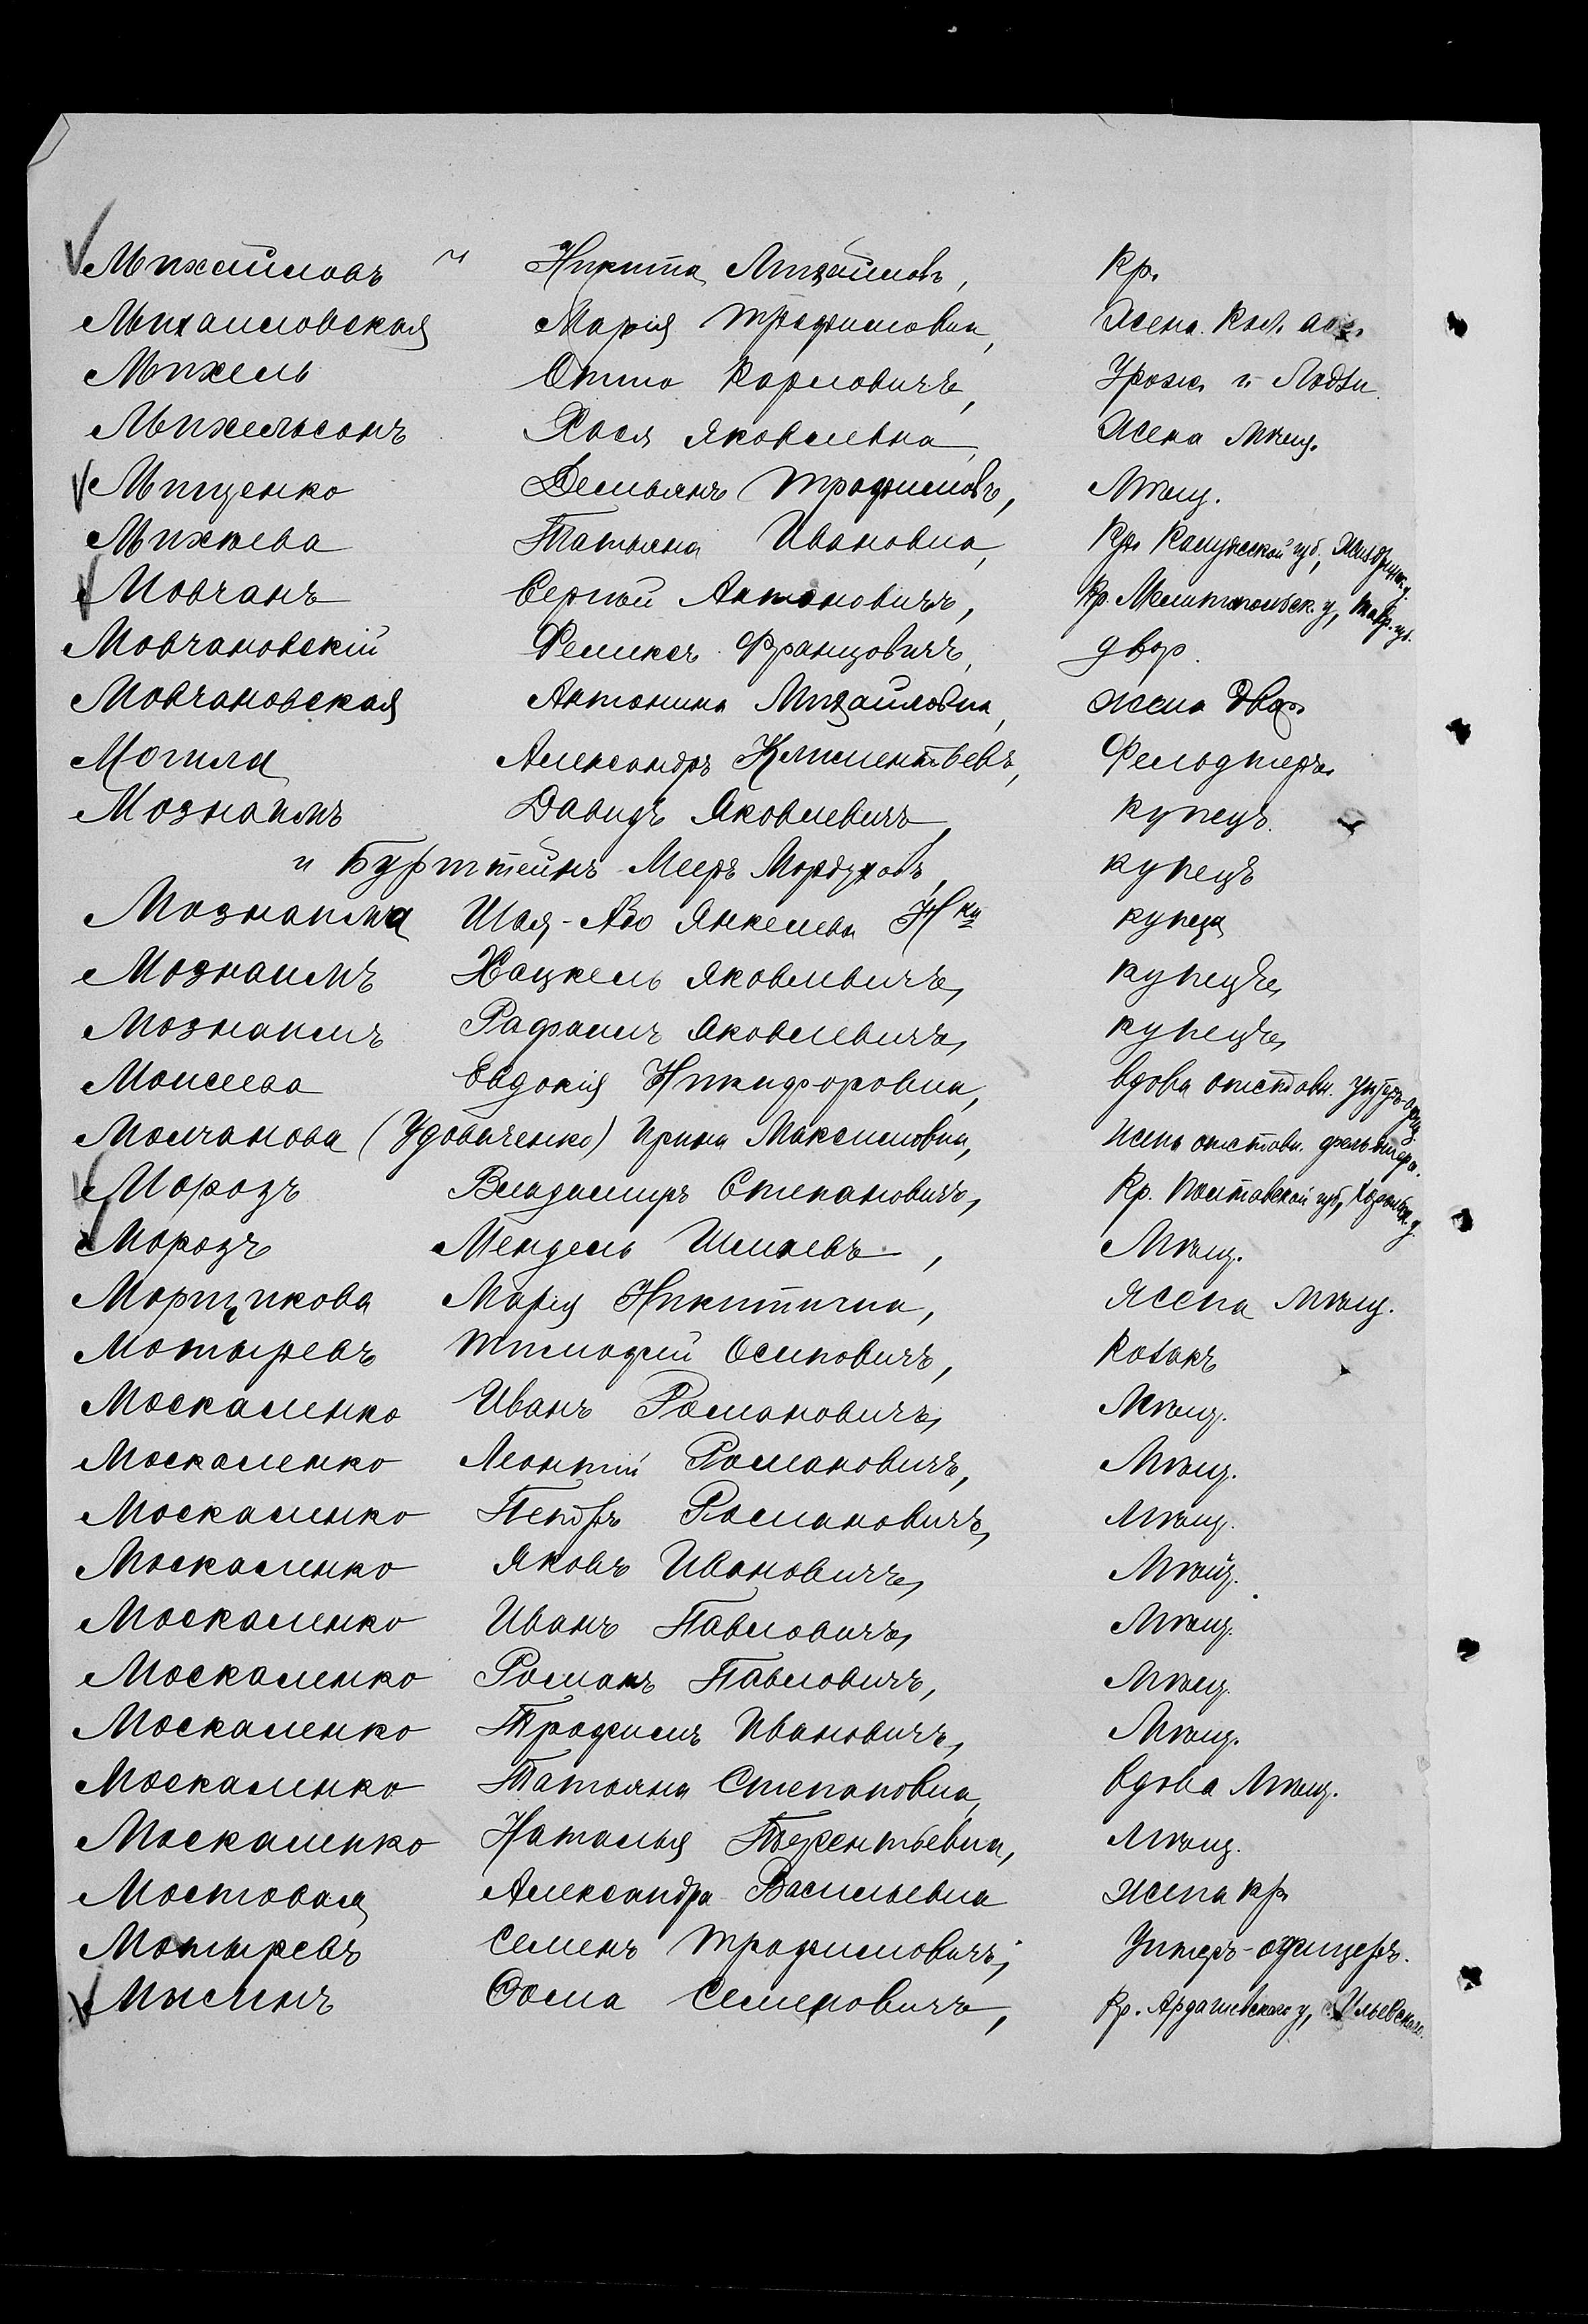 Михайловъ " Никита Михайловъ, Кр.
Михаиловская Марія Трофимовна, Жена Кол. ас.
Михель Отто Карловичъ, Урож. г. Лодзи.
Михельсонъ Хася Яковлевна, Жена Мѣщ.
Мищенко Демьянъ Трофимовъ, Мѣщ.
Михѣева Татьяна Ивановна, Кр. Калужской губ., Жиздринск. у.
Мовчанъ Сергѣй Антоновичъ, Кр. Мелитопольск. у, Тавр. губ.
Мовчановскій Феликсъ Францовичъ, двор.
Мовчановская Антонина Михайловна, жена двор.
Могила Александръ Климентьевъ, Фельдшеръ.
Мознаимъ Давидъ Яковлевичъ, купецъ.
и Бурштейнъ Мееръ Мордуховъ, купецъ
Мознаима Шая-Лею Янкелева Н-ки купца
Мознаимъ Хацкель Яковлевичъ, купецъ,
Мознаимъ Рафаилъ Яковлевичъ, купецъ,
Моисеева Евдокія Никифоровна, вдова отставн. унтеръ-офиц.
Молчанова (Удовиченко) Ирина Максимовна, Жена отставн. фельдшера.
Морозъ Владимиръ Степановичъ, Кр. Полтавской губ, Хорольск. у.
Морозъ Мендель Шмилевъ, Мѣщ.
Морщикова Марія Никитична, Жена Мѣщ.
Мотыревъ Тимофей Осиповичъ, Козакъ
Москаленко Иванъ Романовичъ, Мѣщ.
Москаленко Леонтій Романовичъ, Мѣщ.
Москаленко Петръ Романовичъ, Мѣщ.
Москаленко Яковъ Ивановичъ, Мѣщ.
Москаленко Иванъ Павловичъ, Мѣщ.
Москаленко Романъ Павловичъ, Мѣщ.
Москаленко Трофимъ Ивановичъ, Мѣщ.
Москаленко Татьяна Степановна, вдова Мѣщ.
Москаленко Наталья Терентьевна, Мѣщ.
Мостовая Александра Васильевна жена кр.
Мотыревъ Семенъ Трофимовичъ, Унтеръ-офицеръ.
Мысинъ Фома Семеновичъ, Кр. Ардатовскаго у, с. Ильевскаго.